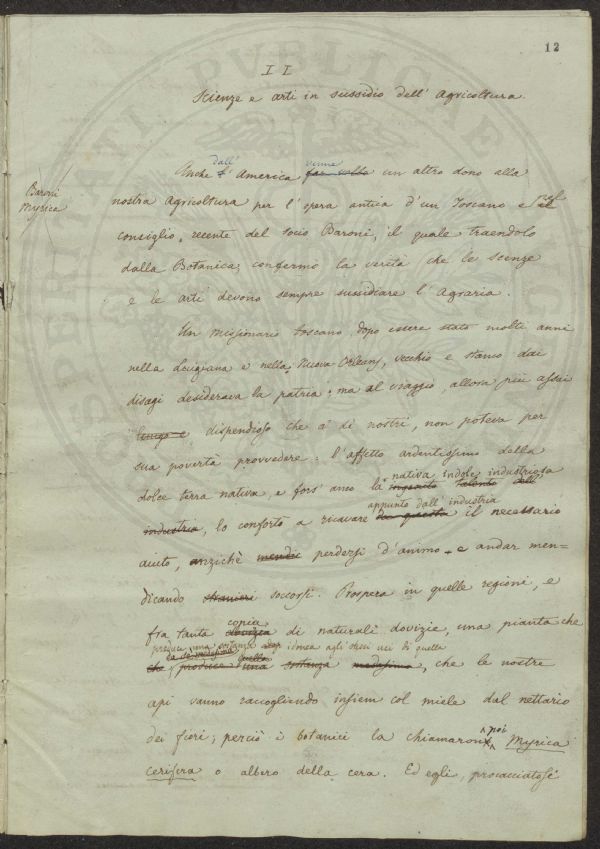 12
II
Scienze e arti in sussidio dell' Agricoltura.
Baroni
Myrica
dall' venne
Anche l' America far volle un altro dono alla
nostra Agricoltura per l' opera antica d'un Toscano e pel
consiglio recente del Socio Baroni, il quale traendolo
dalla Botanica, confermò la verità che le scienze
e le arti devono sempre sussidiare l' Agraria.
Un Missionario toscano, dopo essere stato molti anni
nella Luigiana e nella Nuova Orleans, vecchio e stanco dai
disagi desiderava la patria: ma al viaggio, allora più assai
lungo e dispendioso che a' dì nostri, non poteva per
sua povertà provvedere: l'affetto ardentissimo della
nativa indole industriosa
dolce terra nativa, e fors' anco la ingenito talento dell'
appunto dall' industria
industria, lo confortò a ricavare da questa il necessario
aiuto, anzichè mendic perdersi d'animo e andar men=
dicando stranieri soccorsi. Prospera in quelle regioni, e
copia
fra tanta dovizia di naturali dovizie, una pianta che
produce una sostanza idonea agli stessi usi di quella
da se medesima quella
che produce una sostanza medesima, che le nostre
api vanno raccogliendo insiem col miele dal nettario
poi
dei fiori; perciò i botanici la chiamaron Myrica
cerifera o albero della cera. Ed egli, procacciatosi